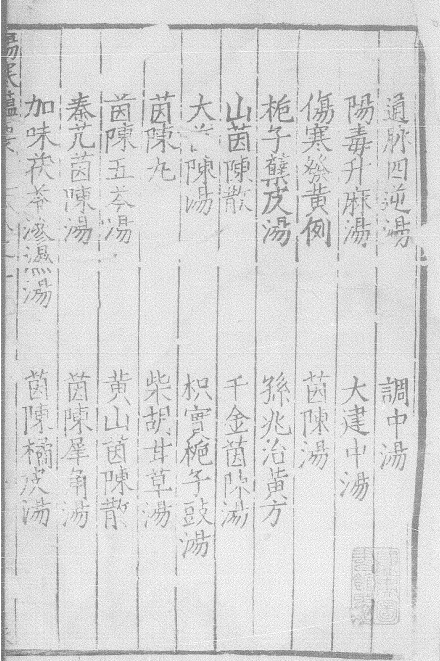 通脉四逆湯　調中湯
陽毒升麻湯　大建中湯
傷寒發黄例　茵陳湯
梔子蘗皮湯　孫兆治黄方
山茵陳散　千金茵陳湯
大茵陳湯　枳實梔子豉湯
茵陳丸　柴胡甘草湯
茵陳五苓湯　黄山茵陳散
秦艽茵陳湯　茵陳犀角湯
加味茯苓滲濕湯　茵陳橘皮湯